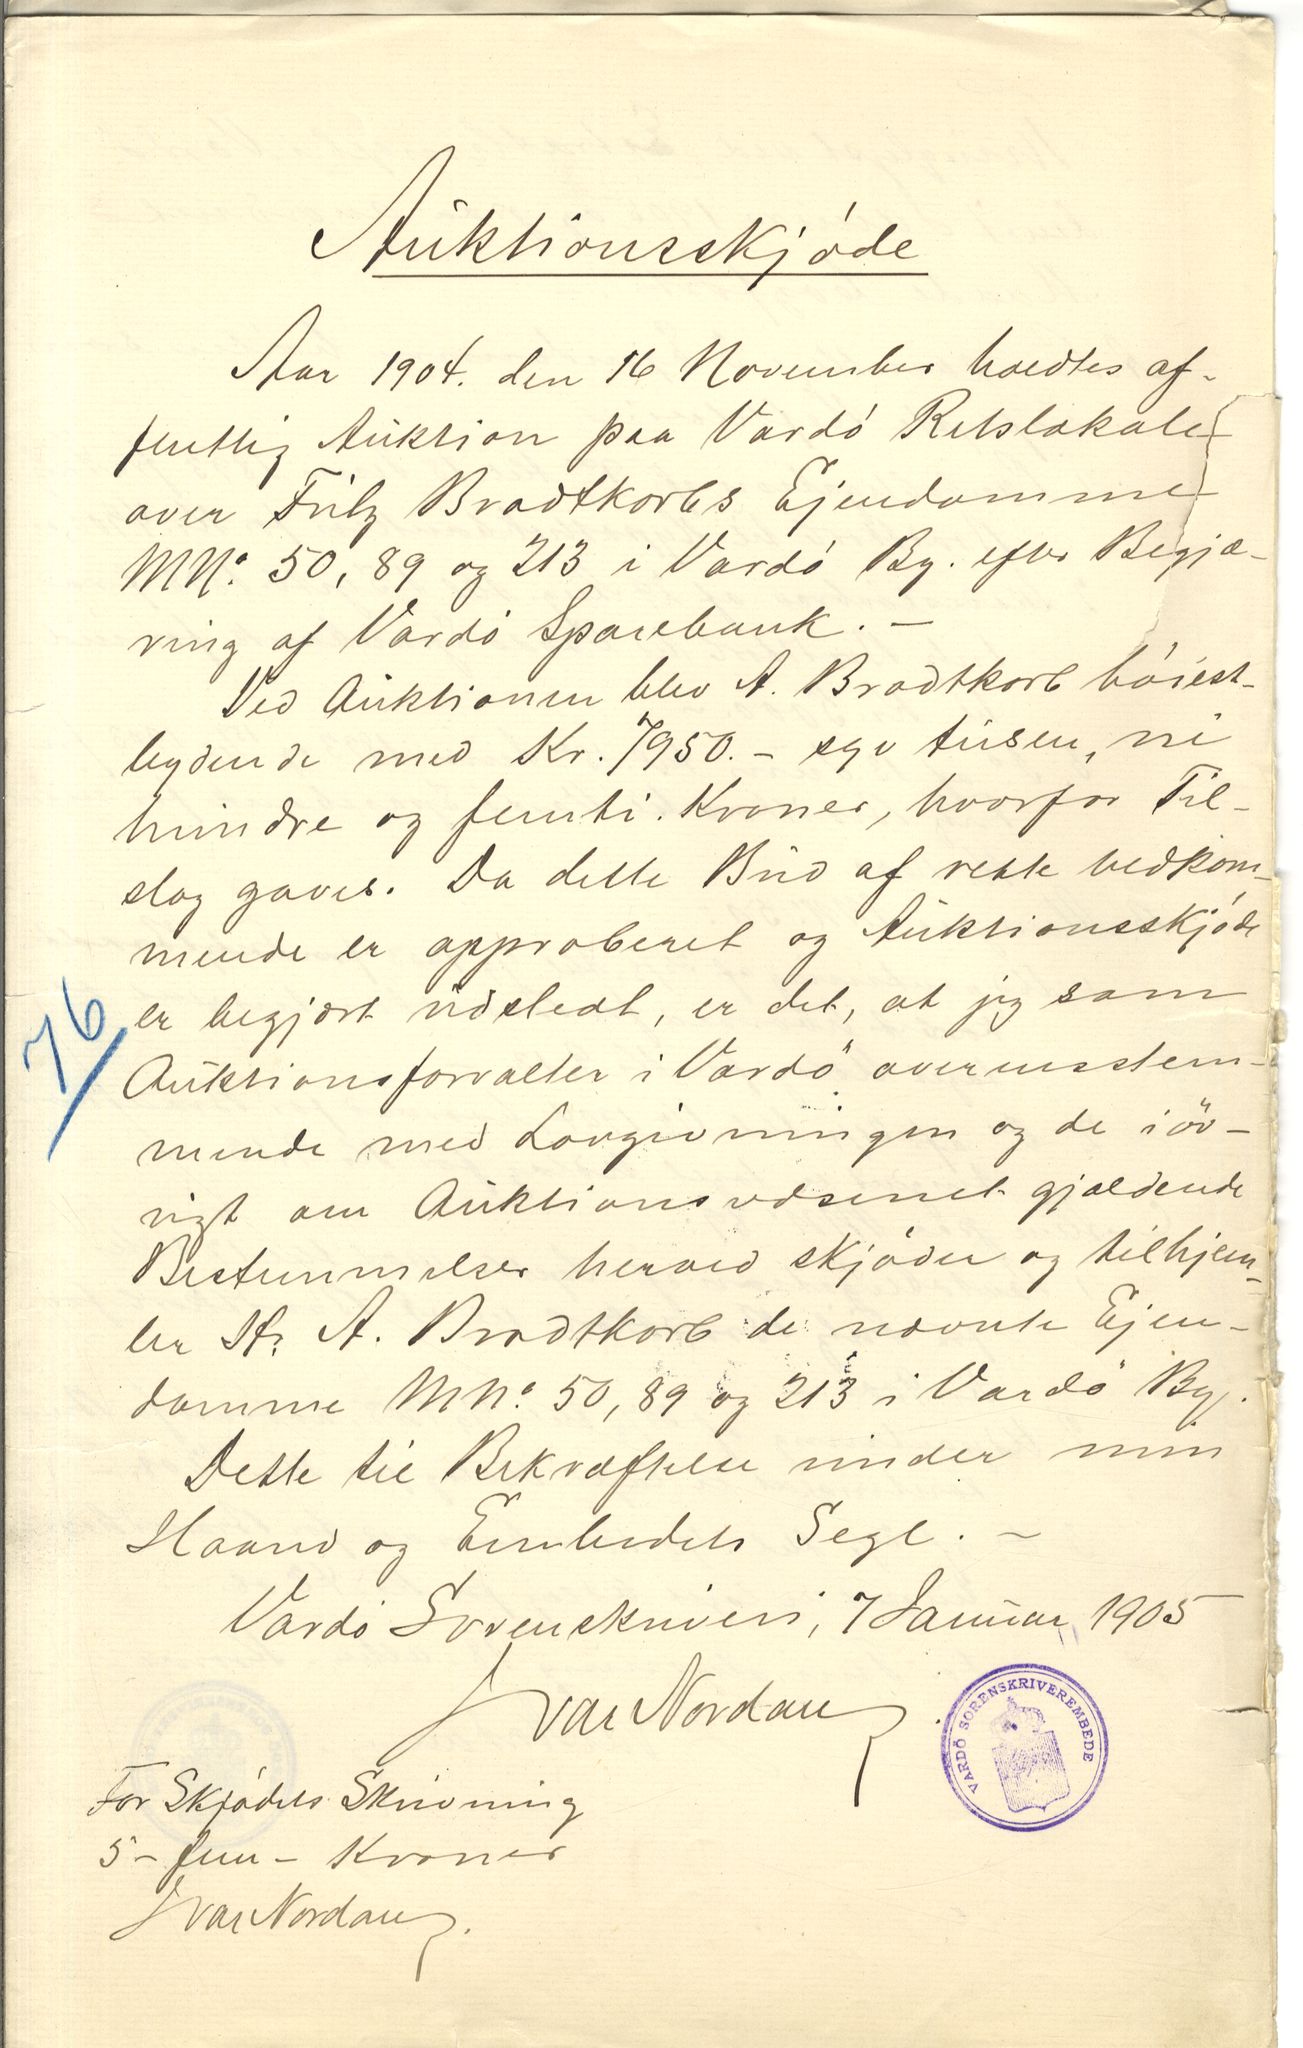 Auktionsskjøde
Aar 1904. den 16 November holdtes of-
fentlig Auktion paa Vardö Retslokale
over Fritz Brodtkorbs Ejendomme
MNº. 50, 89 og 213 i Vardö By. efter Begjæ-
ring af Vardö Sparebank. —
Ved Auktionen blev A. Brodtkorb høiest-
bydende med Kr. 7950. — syv tusen, ni
hundre og femti. Kroner, hvorfor Til-
slag gaves. Da dette Bud af rette vedkom-
mende er approberet og Auktionsskjøde
er begjært udstedt, er det, at jeg som
Auktionsforvalter i Vardö overensstem-
mende med Lovgivningen og de iöv-
rigt om Auktionsvæsenet gjældende
Bestemmelser herved skjøder og tilhjem-
ler Hr. A. Brodtkorb de nævnte Ejen-
domme MNº. 50, 89 og 213 i Vardö By.
Dette til Bekræftelse under min
Haand og Embedets Segl. —
Vardö Sorenskriveri, 7 Januar 1905
Ivar Nordang
VARDÖ SORENSKRIVEREMBEDE
For Skjødets Skrivning
5 — fem — Kroner
Ivar Nordang.
76